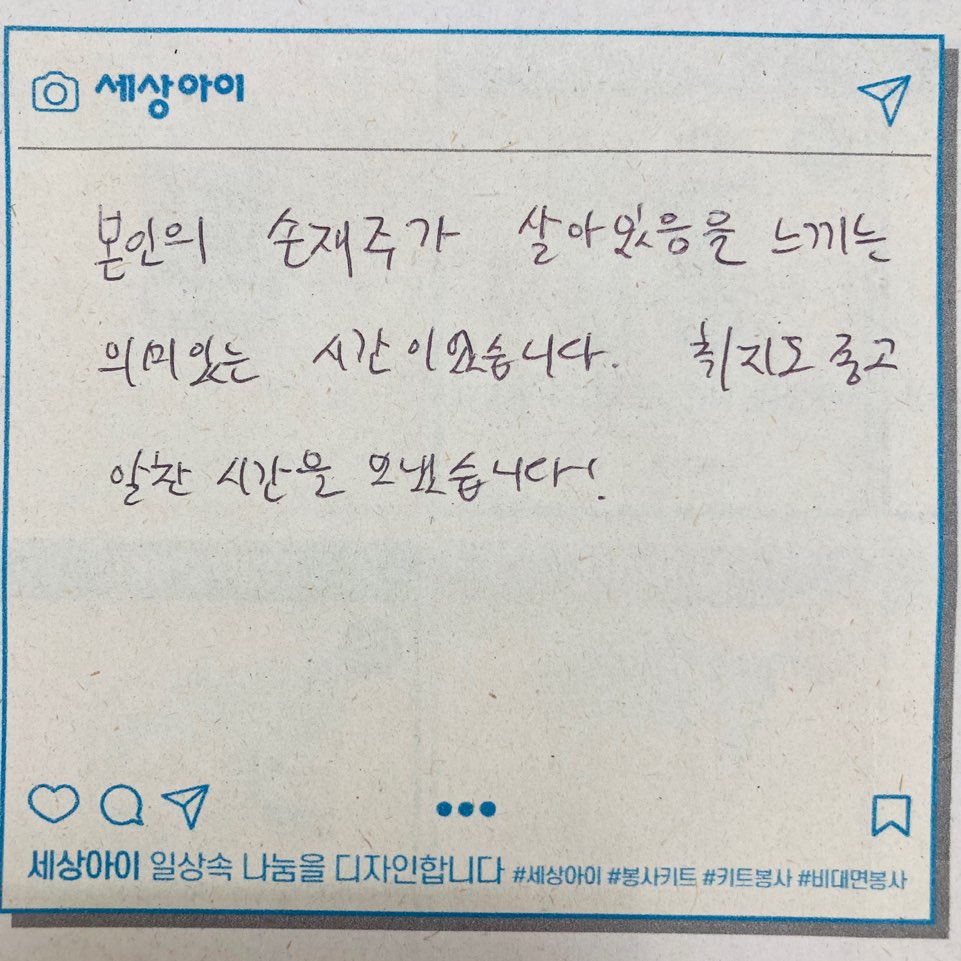 세상아이
본인의 손재주가 살아있음을 느끼는
의미있는 시간이었습니다. 취지도 좋고
알찬 시간을 보냈습니다!
세상아이 일상속 나눔을 디자인합니다 #세상아이 #봉사키트 #키트봉사 #비대면봉사